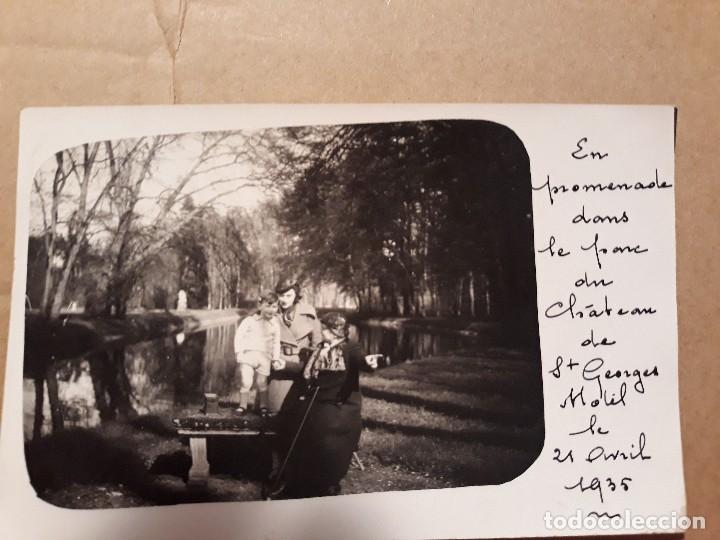 En
promenade
dans
le parc
du
Château
de
St Georges
Motel
le
21 Avril
1935
todocoleccion